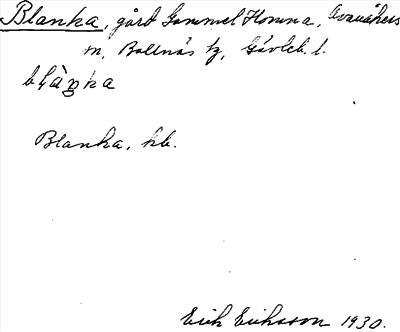 Blanka, gård Gammel Homna, Ovanåkers
m, Bollnäs tg, Gävleb. l.
blàŋka
Blanka, kb.
Erik Eriksson 1930.